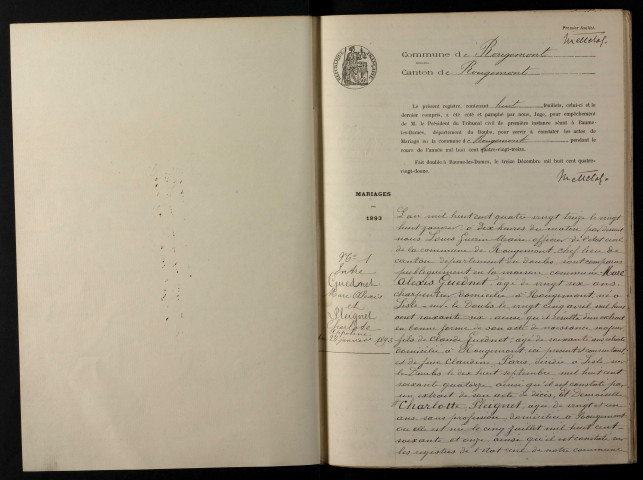 Premier feuillet
Commune de Rougemont
Canton de Rougemont
Le présent registre, contenant huit feuillets, celui-ci et le
dernier compris, a été coté et paraphé par nous, Juge, pour empêchement
de M. le Président du Tribunal civil de première instance séant à Baume-
les-Dames, département du Doubs, pour servir à consigner les actes de
Mariage en la commune de Rougemont pendant le
cours de l'année mil huit cent quatre-vingt-treize.
Fait double à Baume-les-Dames, le treize Décembre mil huit cent quatre-
vingt-douze.
MARIAGES
1893
No 1
Entre
Guednet
Marc Alexis
et
Plaignet
Charlotte
28 janvier 1893
L'an mil huit cent quatre vingt treize le vingt
huit janvier à dix heures du matin par devant
nous Louis Maire officier de l'état civil
de la commune de Rougemont, chef lieu de
canton département du Doubs, sont comparus
publiquement en la maison commune Marc
Alexis Guednet, âgé de vingt six ans,
charpentier domicilié à Rougemont né à
l'Isle sur le Doubs le vingt cinq avril mil huit
cent soixante six ainsi qu'il résulte d'un extrait
en bonne forme de son acte de naissance, majeur
fils de Claude Guednet, âgé de soixante
domicilié à Rougemont, ici présent et consentant
et de feu Claudine Paris, décédée à l'Isle sur
le Doubs, le dix huit septembre mil huit cent
soixante quatorze, ainsi qu'il est constaté par
un extrait de son acte de décès, Et Demoiselle
Charlotte Plaignet, âgée de vingt et un
ans, sans profession domiciliée à Rougemont
où elle est née le cinq juillet mil huit cent
soixante et onze, ainsi qu'il est constaté sur
les registres de l'état civil de notre commune